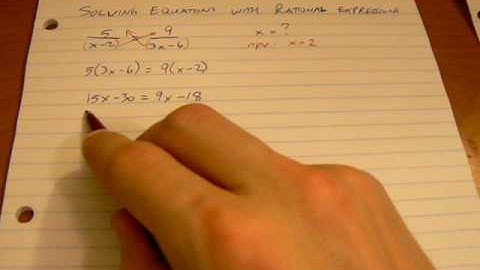 SOLVING EQUATIONS WITH RATIONAL EXPRESSIONS
5/(x-2) 9/(3x-6) x = ?
npv: x=2
5(3x-6) = 9(x-2)
15x-30 = 9x-18